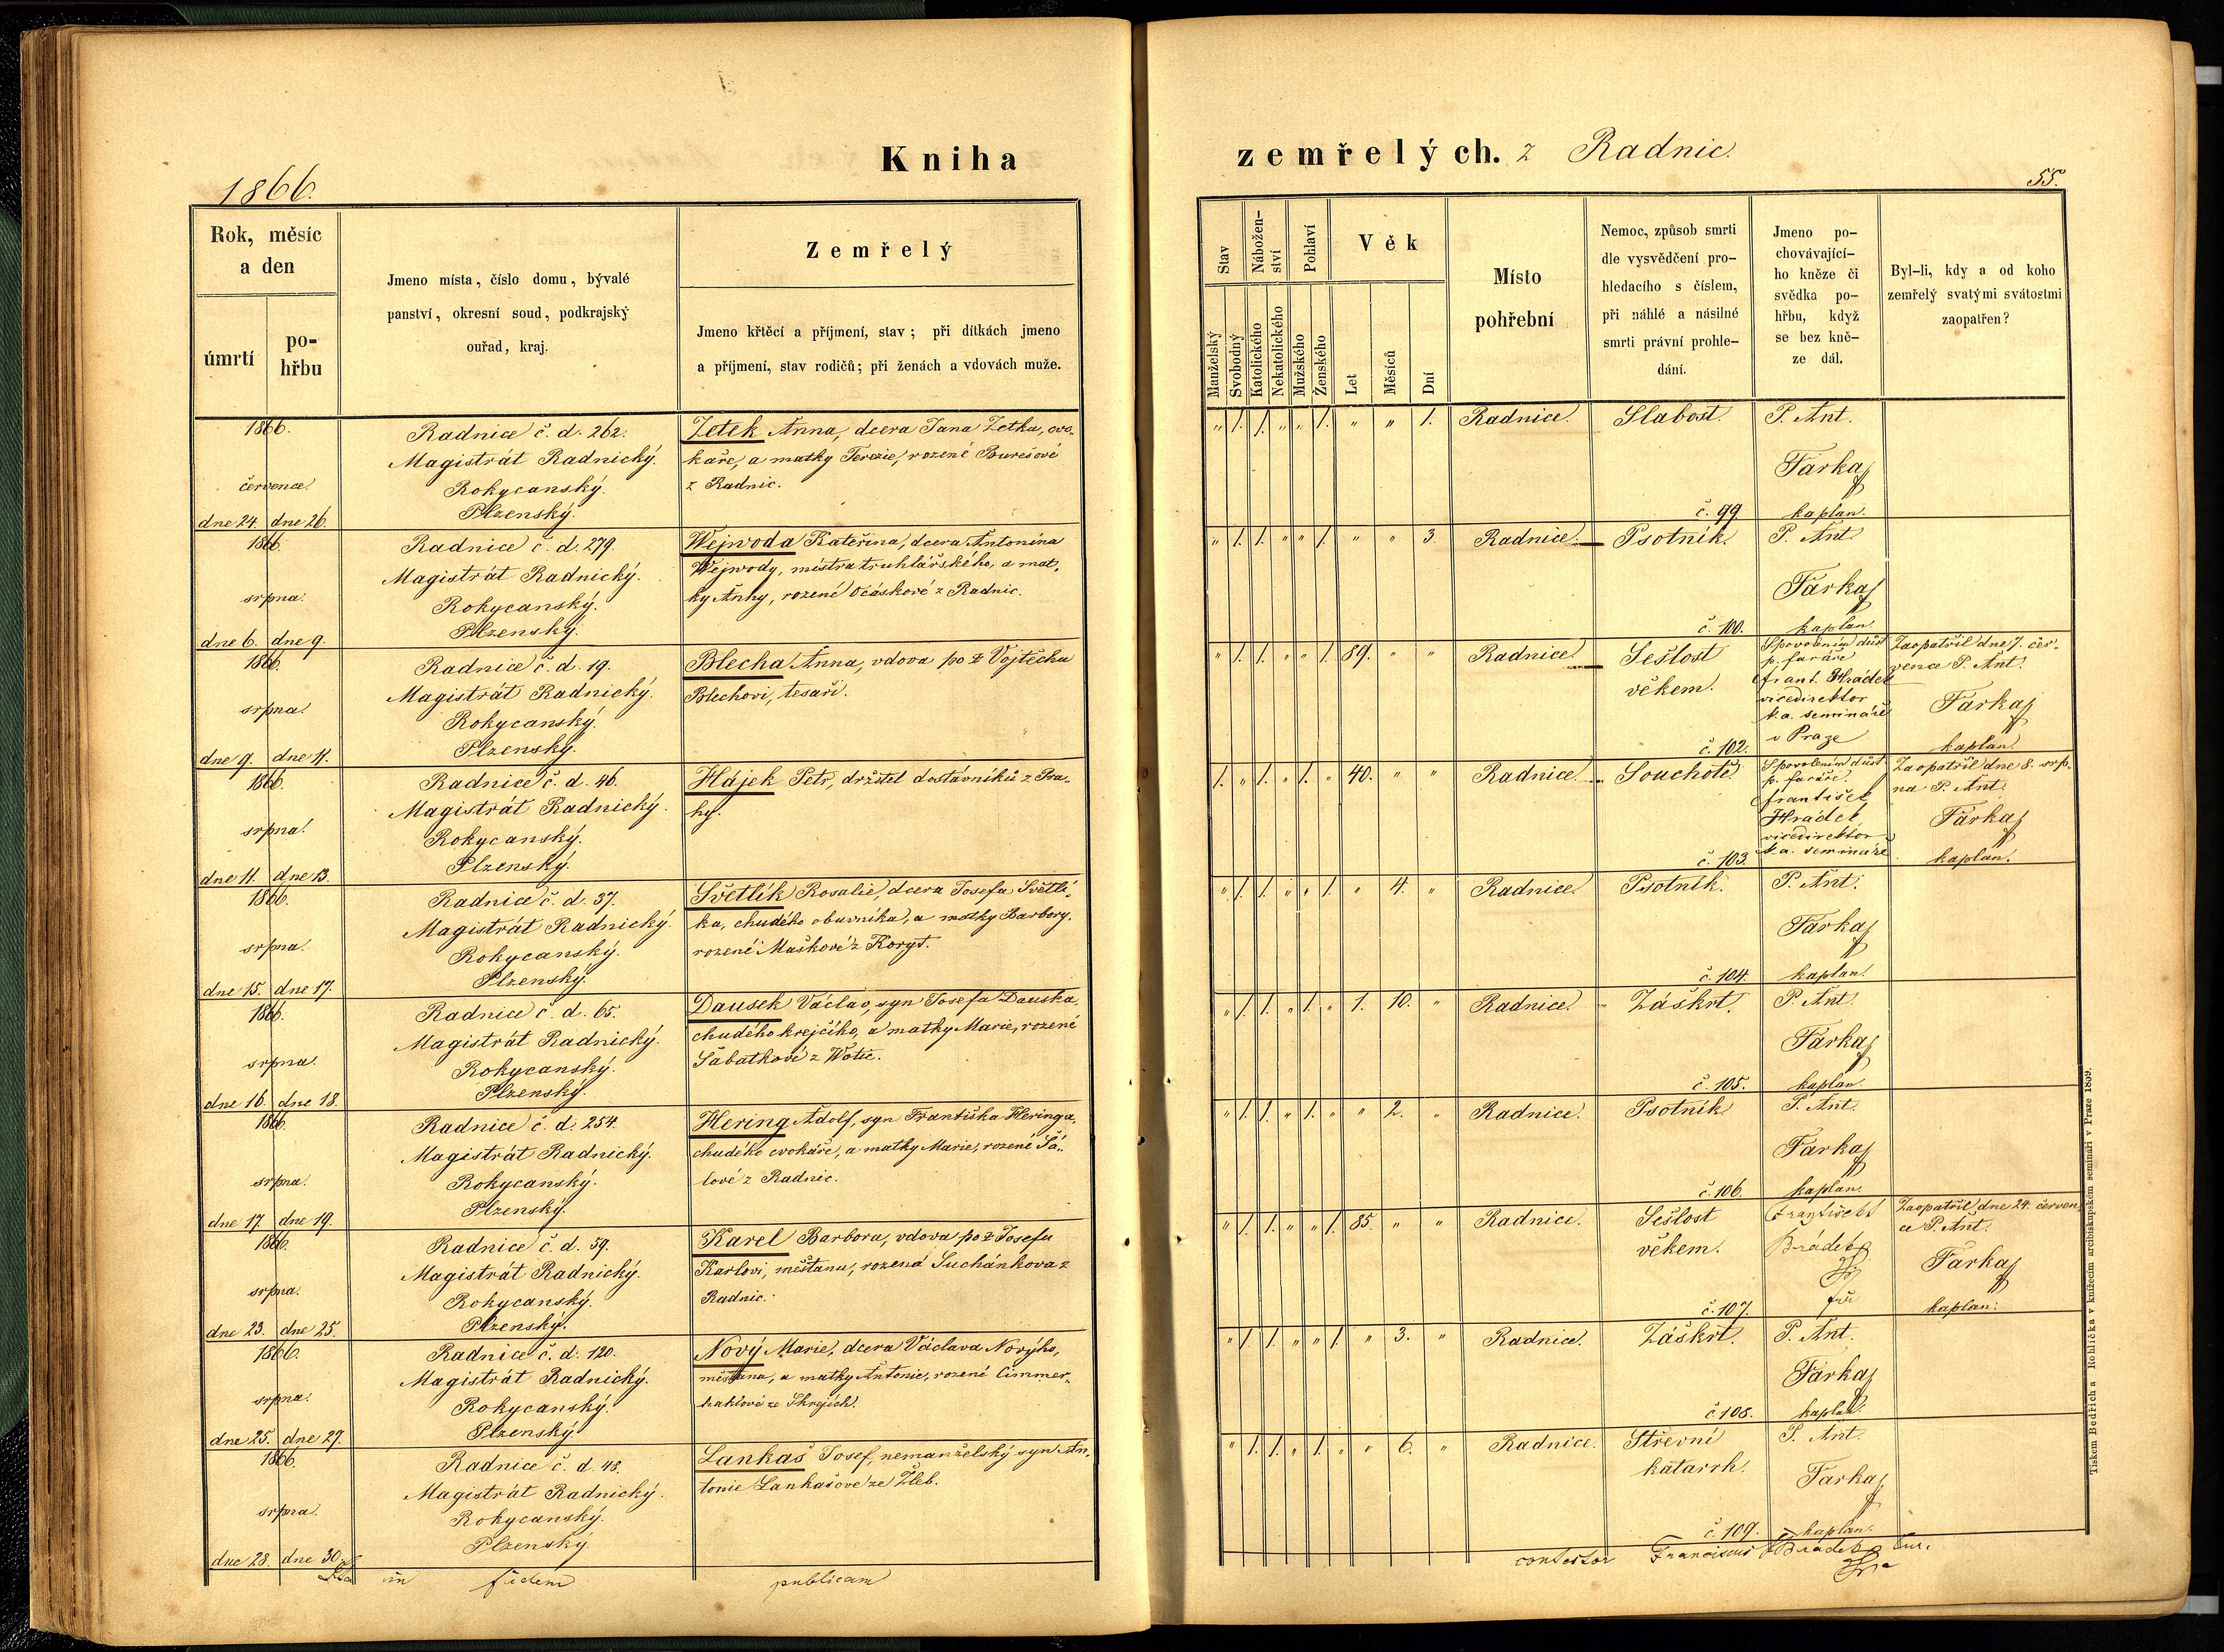 Kniha
zemřelých. z Radnic.
1866.
55.
Rok, měsíc
a den
úmrtí
po-
hřbu
Jmeno místa, číslo domu, bývalé
panství, okresní soud, podkrajský
ouřad, kraj.
Zemřelý
Jmeno křtěcí a příjmení, stav; při dítkách jmeno
a příjmení, stav rodičů; při ženách a vdovách muže.
Stav
Nábožen-
ství
Pohlaví
Věk
Manželský
Svobodný
Katolického
Nekatolického
Mužského
Ženského
Let
Měsíců
Dní
Místo
pohřební
Nemoc, způsob smrti
dle vysvědčení pro-
hledacího s číslem,
při náhlé a násilné
smrti právní prohle-
dání.
Jmeno po-
chovávající-
ho kněze či
svědka po-
hřbu, když
se bez kně-
ze dál.
Byl-li, kdy a od koho
zemřelý svatými svátostmi
zaopatřen?
1866.
července.
dne 24. dne 26.
Radnice č. d. 262.
Magistrát Radnický.
Rokycanský.
Plzenský.
Zetek Anna, dcera Jana Zetka, cvo-
kaře, a matky Terezie, rozené Burešové
z Radnic.
" 1. 1. " " 1. " " 1. Radnice. Slabost. P. Ant.
Farkač
č. 99 kaplan.
1866.
srpna.
dne 6. dne 9.
Radnice č. d. 279.
Magistrát Radnický.
Rokycanský.
Plzenský.
Wejwoda Kateřina, dcera Antonína
Wejwody, mistra truhlářského, a mat-
ky Anny, rozené Očáskové z Radnic.
" 1. 1. " " 1. " " 3. Radnice. Psotník. P. Ant.
Farkač
č. 100. kaplan.
1866.
srpna.
dne 9. dne 11.
Radnice č. d. 19.
Magistrát Radnický.
Rokycanský.
Plzenský.
Blecha Anna, vdova po ž Vojtěchu
Blechovi, tesaři.
" 1. 1. " " 1. 89. " " Radnice. Sešlost
věkem.
č. 102.
S povolením důst
p. faráře
Frant. Hrádek
vicedirektor
k. a. semináře
v Praze
Zaopatřil dne 7. čer-
vence P. Ant.
Farkač
kaplan.
1866.
srpna.
dne 11. dne 13.
Radnice č. d. 46.
Magistrát Radnický.
Rokycanský.
Plzenský.
Hájek Petr, držitel dostavníků z Pra-
hy.
1. " 1. " 1. " 40. " " Radnice. Souchotě.
č. 103.
S povolením důst
p. faráře.
František
Hrádek,
vicedirektor
k. a. semináře
Zaopatřil dne 8. srp-
na P. Ant.
Farkač
kaplan.
1866.
srpna.
dne 15. dne 17.
Radnice č. d. 37.
Magistrát Radnický.
Rokycanský.
Plzenský.
Světlík Rosalie, dcera Josefa Světlí-
ka, chudého obuvníka, a matky Barbory,
rozené Maškové z Koryt.
" 1. 1. " " 1. " 4. " Radnice. Psotník. P. Ant.
Farkač
č. 104. kaplan.
1866.
srpna.
dne 16. dne 18.
Radnice č. d. 65.
Magistrát Radnický.
Rokycanský.
Plzenský.
Dausek Václav, syn Josefa Dauska,
chudého krejčího, a matky Marie, rozené
Šabatkové z Wotic.
" 1. 1. " 1. " 1. 10. " Radnice. Záškrt. P. Ant.
Farkač
č. 105. kaplan.
1866.
srpna.
dne 17. dne 19.
Radnice č. d. 254.
Magistrát Radnický.
Rokycanský.
Plzenský.
Hering Adolf, syn Františka Heringa,
chudého cvokaře, a matky Marie, rozené Šá-
lové z Radnic.
" 1. 1. " 1. " " 2. " Radnice. Psotník. P. Ant.
Farkač
č. 106. kaplan.
1866.
srpna.
dne 23. dne 25.
Radnice č. d. 59.
Magistrát Radnický.
Rokycanský.
Plzenský.
Karel Barbora, vdova po ž Josefu
Karlovi, měšťanu, rozená Suchánkova z
Radnic.
" 1. 1. " " 1. 85. " " Radnice. Sešlost
věkem.
č. 107.
František
Brádek
Zaopatřil dne 24. červen-
ce P. Ant.
Farkač
kaplan.
1866.
srpna.
dne 25. dne 27.
Radnice č. d. 120.
Magistrát Radnický.
Rokycanský.
Plzenský.
Nový Marie, dcera Václava Nového,
měšťana, a matky Antonie, rozené Cimmer-
haklové ze Skrejích.
" 1. 1. " " 1. " 3. " Radnice. Záškrt. P. Ant.
Farkač
č. 108. kaplan.
1866.
srpna.
dne 28. dne 30.
Radnice č. d. 48.
Magistrát Radnický.
Rokycanský.
Plzenský.
Lankaš Josef, nemanželský syn An-
tonie Lankašové ze Žleb.
" 1. 1. " 1. " " 6. " Radnice. Střevní
katarrh.
P. Ant.
Farkač
č. 109. kaplan.
in fidem publicam
contestor Franciscus Brádek Cur.
Tiskem Bedřicha Rohlíčka v knížecím arcibiskupském semináři v Praze 1859.